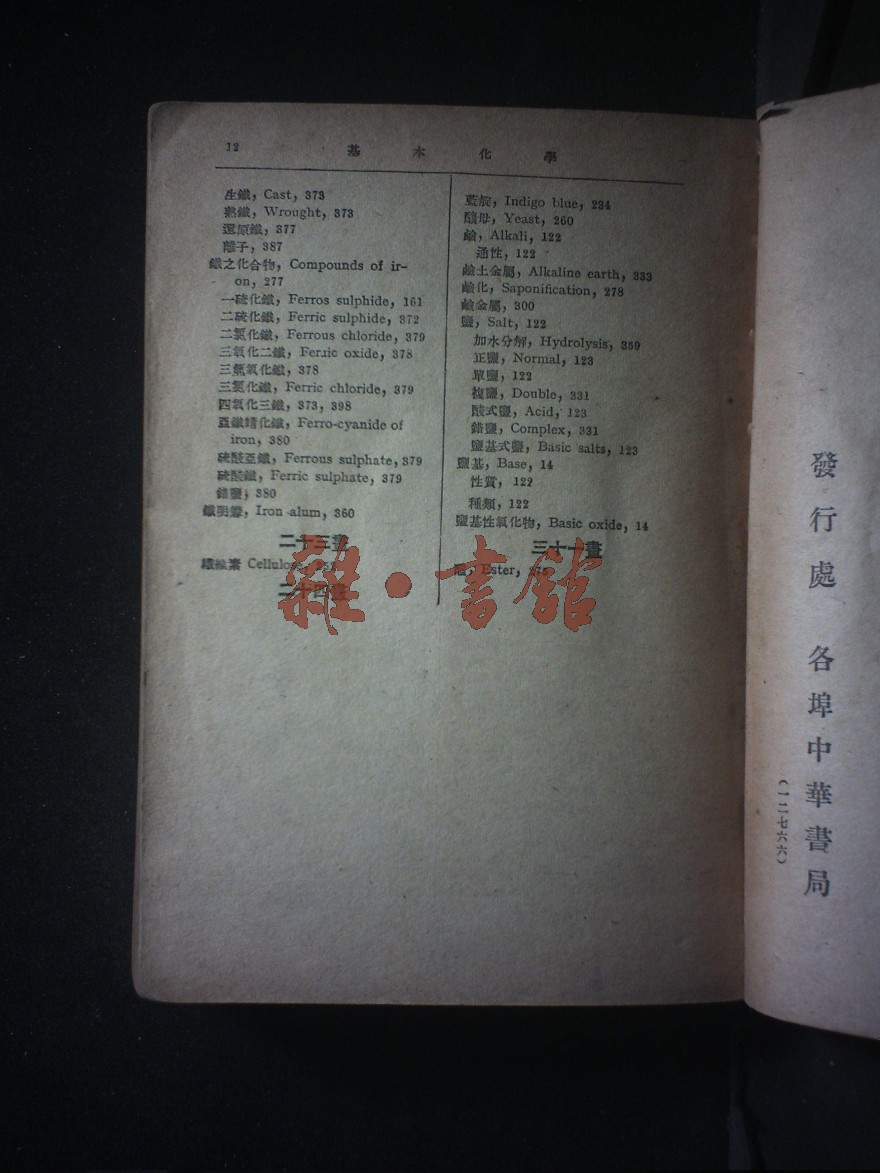 12
基本化學
生鐵，Cast，373
熟鐵，Wrought，373
還原鐵，377
離子，387
鐵之化合物，Compounds of ir-
on，277
一硫化鐵，Ferros sulphide，161
二硫化鐵，Ferric sulphide，372
二氯化鐵，Ferrous chloride，379
三氧化二鐵，Ferric oxide，378
三氫氧化鐵，378
三氯化鐵，Ferric chloride，379
四氧化三鐵，373，398
亞鐵錆化鐵，Ferro-cyanide of
iron，380
硫酸亞鐵，Ferrous sulphate，379
硫酸鐵，Ferric sulphate，379
錯鹽，380
鐵明礬，Iron alum，360
二十三畫
纖維素 Cellulose，
二十四畫
藍靛，Indigo blue，234
釀母，Yeast，260
鹼，Alkali，122
通性，122
鹼土金屬，Alkaline earth，333
鹼化，Saponification，278
鹼金屬，300
鹽，Salt，122
加水分解，Hydrolysis，359
正鹽，Normal，123
單鹽，122
複鹽，Double，331
酸式鹽，Acid，123
錯鹽，Complex，331
鹽基式鹽，Basic salts，123
鹽基，Base，14
性質，122
種類，122
鹽基性氧化物，Basic oxide，14
三十一畫
Ester，
雜·書館
發行處 各埠中華書局
（一二七六六）